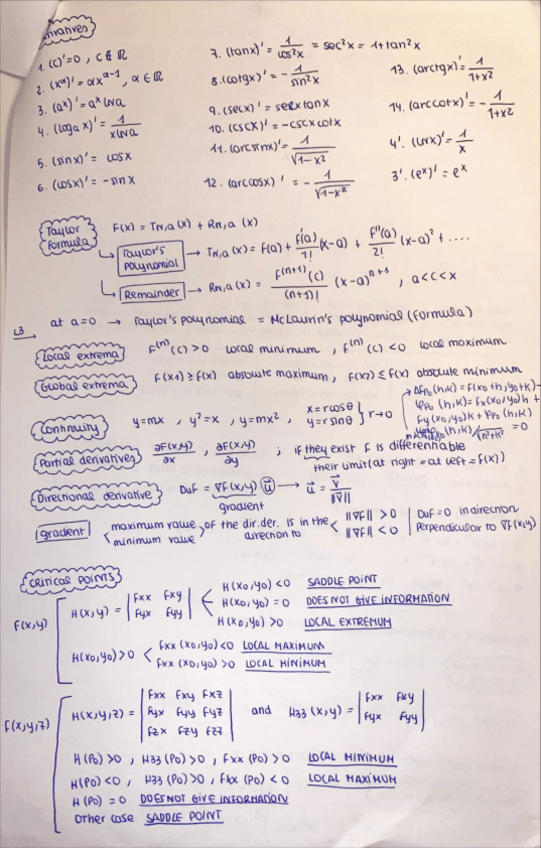 1. (c)'=0, c∈ℝ
2. (x^α)'=αx^(α-1), α∈ℝ
3. (a^x)'=a^x lna
4. (log_a x)'=1/(x lna)
5. (sinx)'= cosx
6. (cosx)'= -sinx
7. (tanx)'= 1/cos²x = sec²x = 1+tan²x
8. (cotgx)'= -1/sin²x
9. (secx)' = secx tanx
10. (cscx)' = -cscx cotx
11. (arcsinx)'= 1/√(1-x²)
12. (arccosx)' = -1/√(1-x²)
13. (arctgx)'= 1/(1+x²)
14. (arccotx)'= -1/(1+x²)
4'. (lnx)'= 1/x
3'. (e^x)'= e^x
Taylor Formula
F(x) = Tn,a (x) + Rn,a (x)
Taylor's Polynomial → Tn,a (x) = F(a) + F'(a)/1! (x-a) + F''(a)/2! (x-a)² + ....
Remainder → Rn,a (x) = F^(n+1)(c)/(n+1)! (x-a)^(n+1), a<c<x
L3 at a=0 → Taylor's polynomial = McLaurin's polynomial (formula)
Local extrema F^(n)(c)>0 local minimum, F^(n)(c)<0 local maximum
Global extrema F(x1)≥F(x) absolute maximum, F(x2)≤F(x) absolute minimum
Continuity y=mx, y²=x, y=mx², x=rcosθ y=rsinθ } r→0
ΔFp₀(h,k)=F(x₀+h,y₀+k)-
φp₀(h,k)=Fx(x₀,y₀)h +
Fy(x₀,y₀)k + φp₀(h,k)
φp₀(h,k)/√(h²+k²) = 0
Partial derivatives ∂F(x,y)/∂x, ∂F(x,y)/∂y ; if they exist F is differentiable
their limit (at right = at left = F(x))
Directional derivative DuF = ∇F(x,y) u⃗ → u⃗ = v⃗/‖v⃗‖
gradient
gradient < maximum value minimum value > of the dir.der. is in the direction to < ‖∇F‖ >0 ‖∇F‖ <0 | DuF=0 in direction Perpendicular to ∇F(x,y)
CRITICAL POINTS
F(x,y)
H(x,y) = |Fxx Fxy Fyx Fyy|
H(x₀,y₀)<0 SADDLE POINT
H(x₀,y₀) = 0 DOES NOT GIVE INFORMATION
H(x₀,y₀) >0 LOCAL EXTREMUM
H(x₀,y₀)>0 < Fxx (x₀,y₀)<0 LOCAL MAXIMUM
Fxx (x₀,y₀) >0 LOCAL MINIMUM
F(x,y,z)
H(x,y,z) = |Fxx Fxy Fxz Fyx Fyy Fyz Fzx Fzy Fzz| and H33 (x,y) = |Fxx Fxy Fyx Fyy|
H(P₀)>0, H33(P₀)>0, Fxx(P₀)>0 LOCAL MINIMUM
H(P₀)<0, H33(P₀)>0, Fxx(P₀)<0 LOCAL MAXIMUM
H(P₀)=0 DOES NOT GIVE INFORMATION
Other case SADDLE POINT